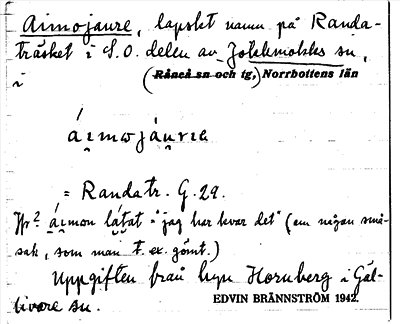 Aimojaure, lapskt namn på Randa-
träsket i S.O. delen av Jokkmokks sn,
i (Råneå sn och tg,) Norrbottens län
áimojáurie
= Randatr. G. 29.
Jfr áimon låtat "jag har kvar det" (om någon små-
sak, som man t. ex. gömt.)
Uppgiften från lapp Hornberg i Gäl-
livare sn. EDVIN BRÄNNSTRÖM 1942.